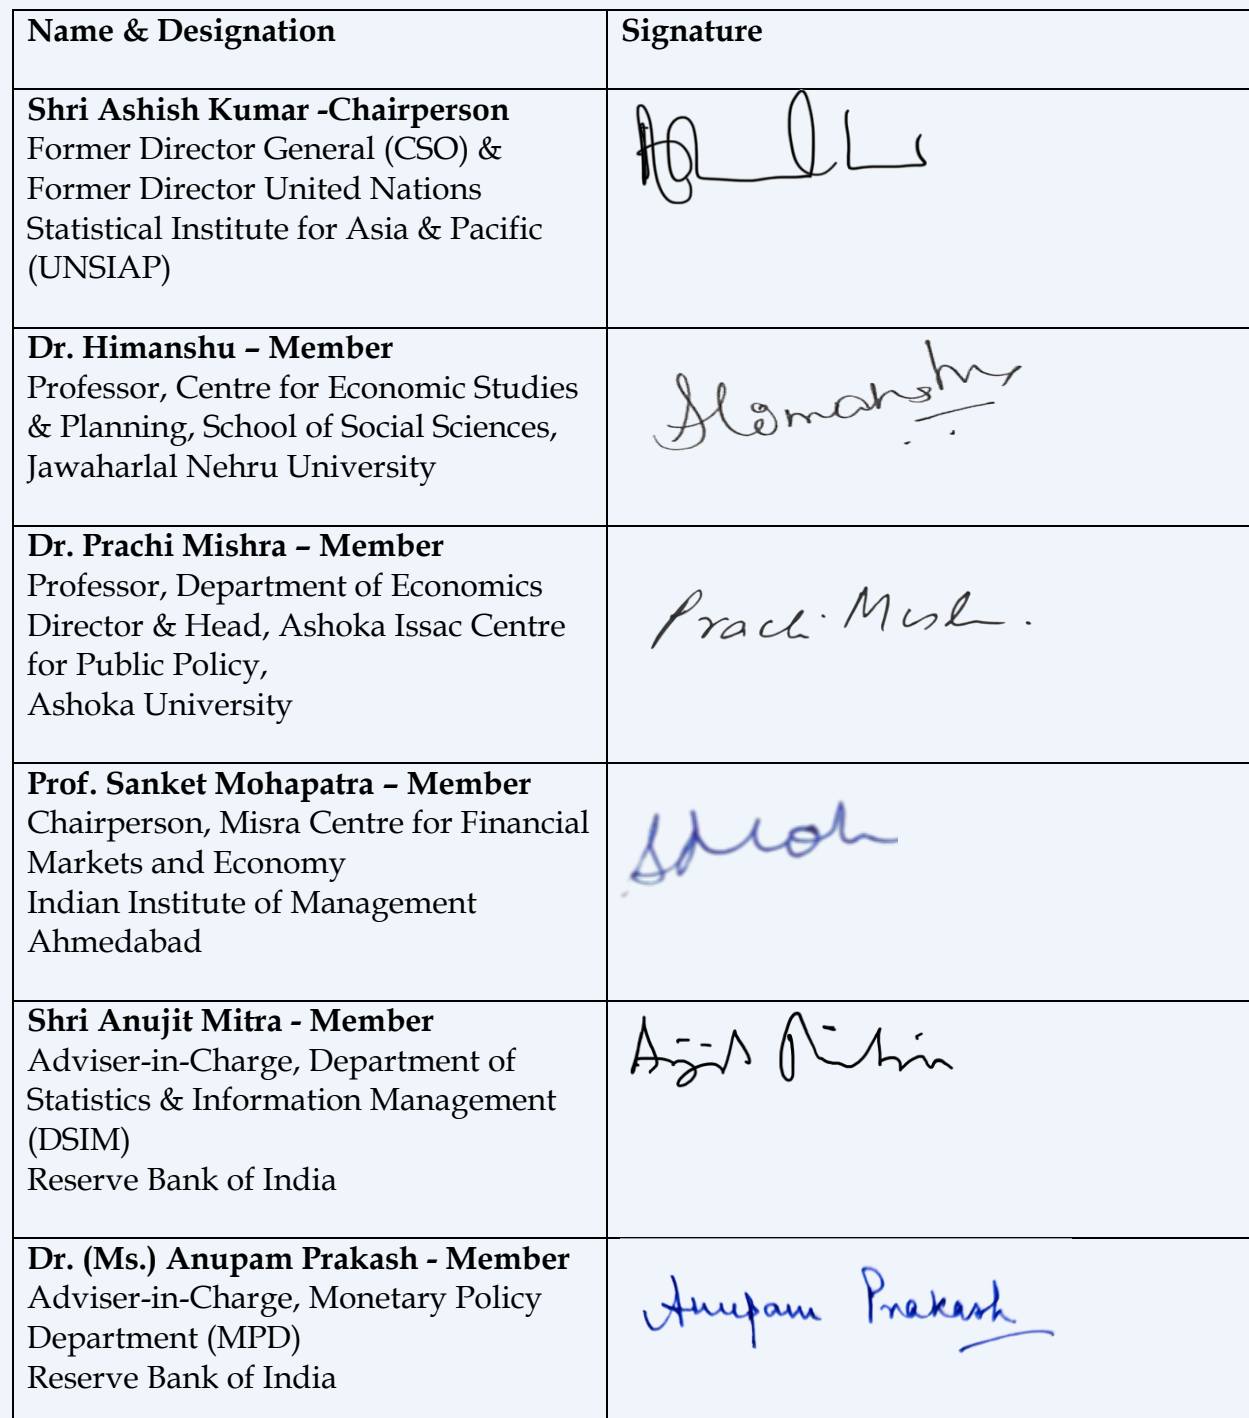 Name & Designation
Signature
Shri Ashish Kumar -Chairperson
Former Director General (CSO) &
Former Director United Nations
Statistical Institute for Asia & Pacific
(UNSIAP)
Dr. Himanshu – Member
Professor, Centre for Economic Studies
& Planning, School of Social Sciences,
Jawaharlal Nehru University
Himanshu
Dr. Prachi Mishra – Member
Professor, Department of Economics
Director & Head, Ashoka Issac Centre
for Public Policy,
Ashoka University
Prachi Mish
Prof. Sanket Mohapatra – Member
Chairperson, Misra Centre for Financial
Markets and Economy
Indian Institute of Management
Ahmedabad
Shri Anujit Mitra - Member
Adviser-in-Charge, Department of
Statistics & Information Management
(DSIM)
Reserve Bank of India
Dr. (Ms.) Anupam Prakash - Member
Adviser-in-Charge, Monetary Policy
Department (MPD)
Reserve Bank of India
Anupam Prakash